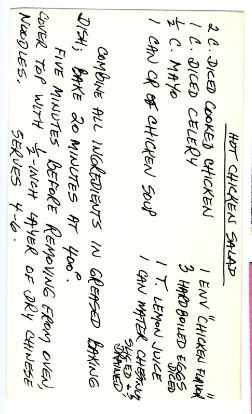 HOT CHICKEN SALAD
2 C. DICED COOKED CHICKEN
1 C. DICED CELERY
½ C. MAYO
1 CAN CR OF CHICKEN SOUP
1 ENV "CHICKEN FLAVOR"
3 HARDBOILED EGGS DICED
1 T. LEMON JUICE
1 CAN WATER CHESTNUTS SLICED & DRAINED
COMBINE ALL INGREDIENTS IN GREASED BAKING
DISH; BAKE 20 MINUTES AT 400°.
FIVE MINUTES BEFORE REMOVING FROM OVEN,
COVER TOP WITH ½-INCH LAYER OF DRY CHINESE
NOODLES. SERVES 4-6.